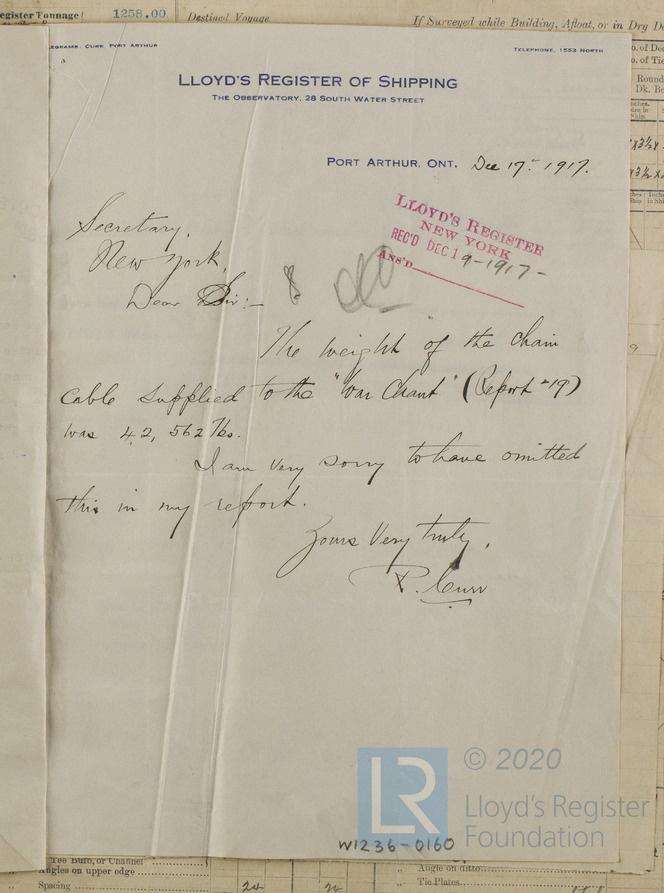 egister Tonnage
1258.00
Destined Voyage
If Surveyed while Building, Afloat, or in Dry D
EGRAMS. CURR, PORT ARTHUR
TELEPHONE, 1553 NORTH
LLOYD'S REGISTER OF SHIPPING
THE OBSERVATORY, 28 SOUTH WATER STREET
PORT ARTHUR, ONT. Dec 17th 1917.
LLOYD'S REGISTER
NEW YORK
REC'D DEC 19-1917-
ANS'D
Secretary,
New York,
Dear Sir:-
The weight of the chain
cable supplied to the "War Chant" (Report #19)
was 42,562 lbs.
I am very sorry to have omitted
this in my report.
Yours Very truly,
R. Curr
o. of De
o. of Tie
Round
Dk. Be
© 2020
LR
Lloyd's Register
Foundation
W1236-0160
Tee Bulb, or Channel
Angles on upper edge
Spacing
Angle on ditto
Tie Plates